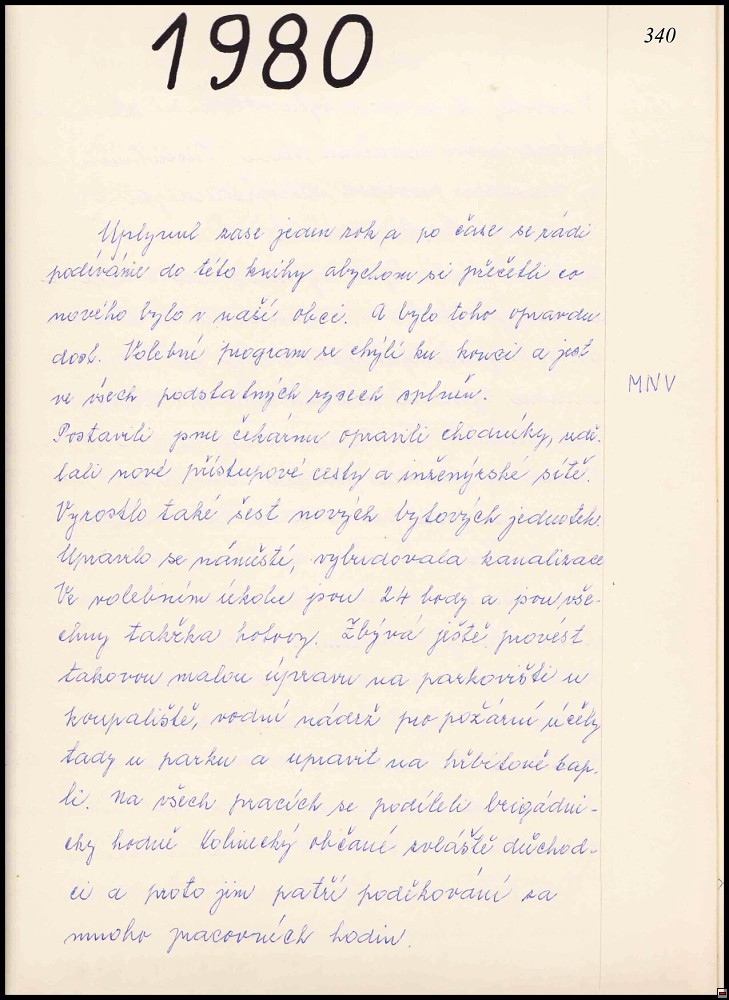 1980
340
Uplynul zase jeden rok a po čase se rádi
podíváme do této knihy abychom si přečetli co
nového bylo v naší obci. A bylo toho opravdu
dost. Volební program se chýlí ku konci a jest
ve všech podstatných rysech splněn.
MNV
Postavili jsme čekárnu opravili chodníky, udě-
lali nové přístupové cesty a inženýrské sítě.
Vyrostlo také šest nových bytových jednotek.
Upravilo se náměstí, vybudovala kanalizace
Ve volebním úkolu jsou 24 body a jsou vše-
chny takřka hotovy. Zbývá ještě provést
takovou malou úpravu na parkovišti u
koupaliště, vodní nádrž pro požární účely
tady u parku a upravit na hřbitově kap-
li. Na všech pracích se podíleli brigádni-
cky hodně Kolinecký občané zvláště důchod-
ci a proto jim patří poděkování za
mnoho pracovních hodin.